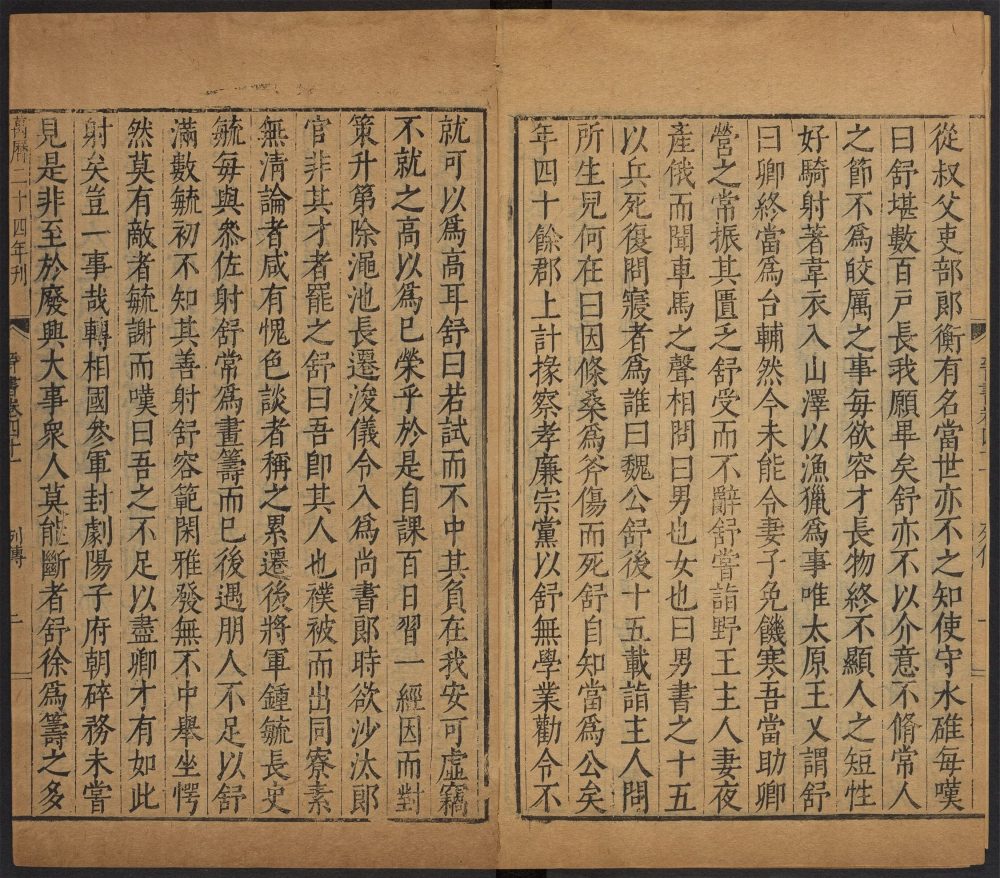 從叔父吏部郎衡有名當世亦不之知使守水碓每嘆
曰舒堪數百戸長我願畢矣舒亦不以介意不脩常人
之節不爲皎厲之事每欲容才長物終不顯人之短性
好騎射著韋衣入山澤以漁獵爲事唯太原王乂謂舒
曰卿終當爲台輔然今未能令妻子免饑寒吾當助卿
營之常振其匱乏舒受而不辭舒嘗詣野王主人妻夜
產俄而聞車馬之聲相問曰男也女也曰男書之十五
以兵死復問寢者爲誰曰魏公舒後十五載詣主人問
所生兒何在曰因條桑爲斧傷而死舒自知當爲公矣
年四十餘郡上計掾察孝廉宗黨以舒無學業勸令不
就可以爲高耳舒曰若試而不中其負在我安可虛竊
不就之高以爲已榮乎於是自課百日習一經因而對
策升第除澠池長遷浚儀令入爲尚書郎時欲沙汰郎
官非其才者罷之舒曰吾即其人也襆被而出同寮素
無清論者咸有愧色談者稱之累遷後將軍鍾毓長史
毓每與叅佐射舒常爲畫籌而已後遇朋人不足以舒
滿數毓初不知其善射舒容範閑雅發無不中舉坐愕
然莫有敵者毓謝而嘆曰吾之不足以盡卿才有如此
射矣豈一事哉轉相國叅軍封劇陽子府朝碎務未嘗
見是非至於廢興大事衆人莫能斷者舒徐爲籌之多
萬曆二十四年刊
晉書卷四十一
列傳
二